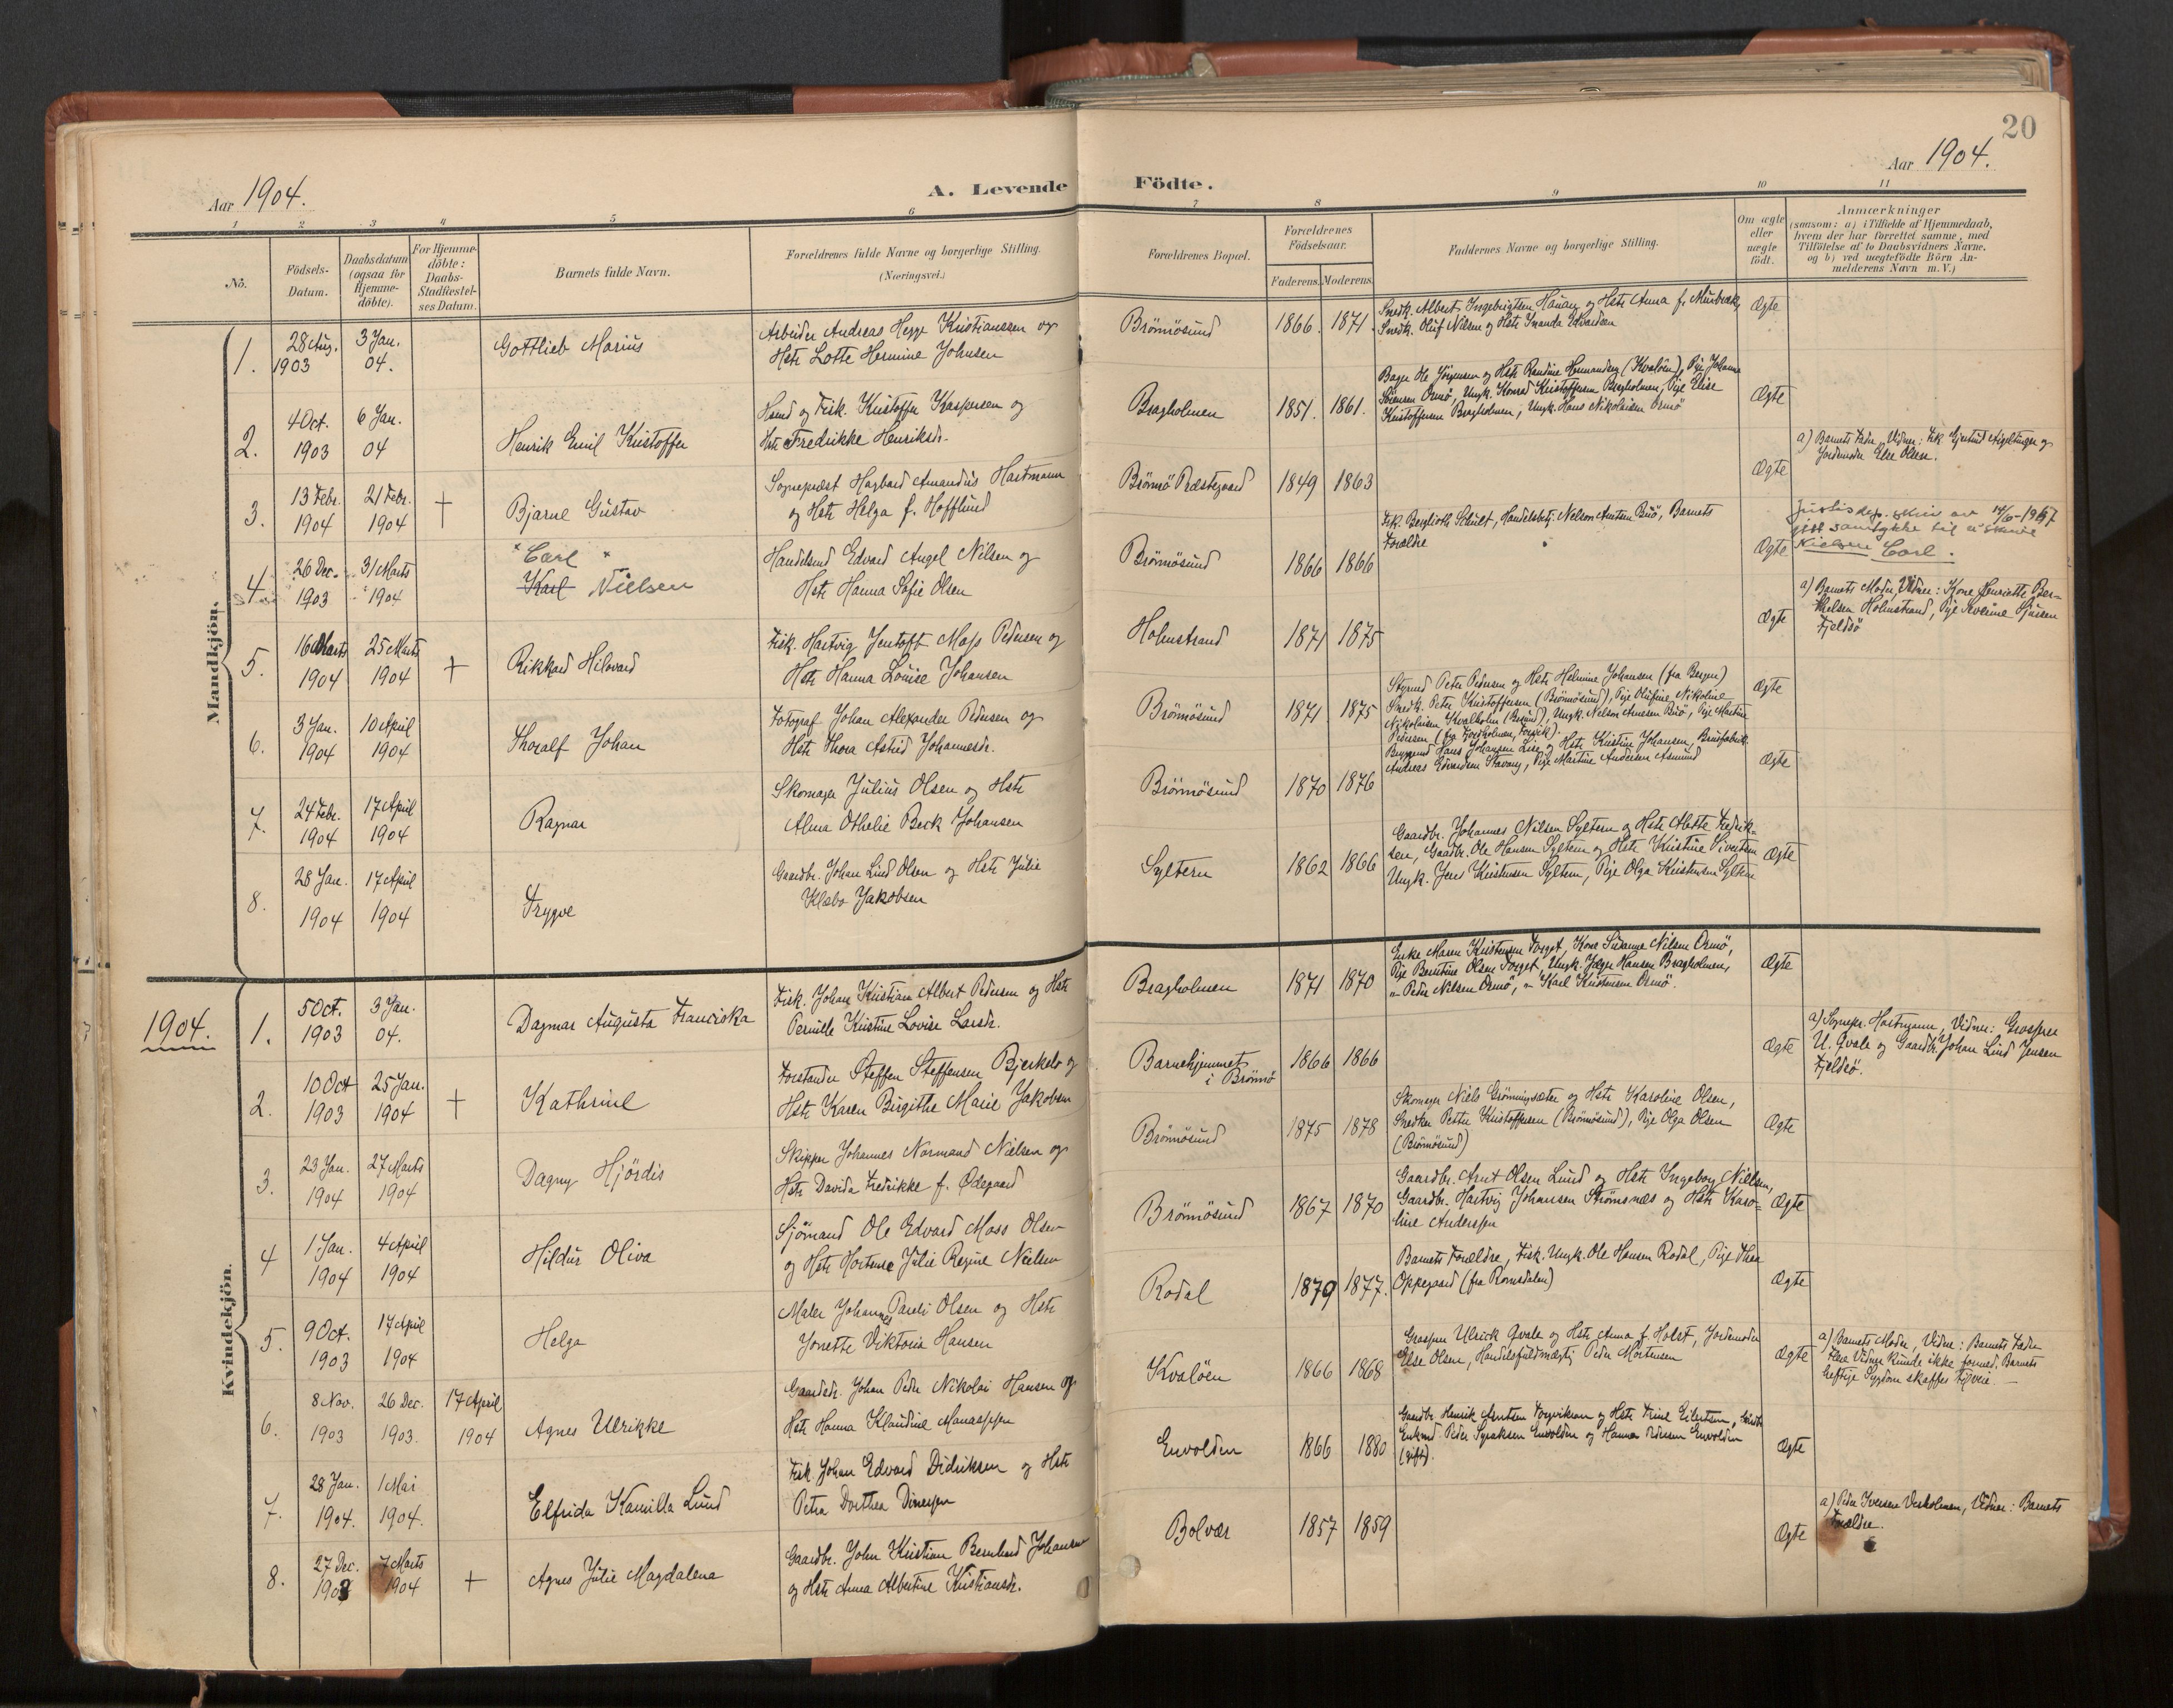 20
Aar 1904.
A. Levende Födte.
Aar 1904.
1 2 3 4 5 6 7 8 9 10 11
No.
Födsels-Datum.
Daabsdatum (ogsaa for Hjemme-döbte).
For Hjemme-döbte: Daabs-Stadfæstel-ses Datum.
Barnets fulde Navn.
Forældrenes fulde Navne og borgerlige Stilling.
(Næringsvei.)
Forældrenes Bopæl.
Forældrenes Födselsaar.
Faderens. Moderens.
Faddernes Navne og borgerlige Stilling.
Om ægte eller uægte födt.
Anmærkninger
(saasom: a) i Tilfælde af Hjemmedaab,
hvem der har forrettet samme, med
Tilföielse af to Daabsvidners Navne,
og b) ved uægtefödte Börn An-
melderens Navn m. V.)
Mandkjön.
1. 28 Aug. 1903 3 Jan. 04. Gottlieb Marius
Arbeider Andreas Hegge Kristianssen og
Hstr Lotte Hermine Johnsen
Brönnösund 1866. 1871.
Snedk. Albert Ingebrigtsen Hauan og Hstr Anna f. Murbræk,
Snedk. Oluf Nilsen og Hstr Amanda Edvardsen
Ægte
2. 4 Oct. 1903 6 Jan. 04 Henrik Emil Kristoffer
Hsmd og Fisk. Kristoffer Kaspersen og
Hstr Fredrikke Henriksdr.
Bragholmen 1851. 1861.
Bager Ole Jörgensen og Hstr Randine Hermandsen (Kvalöen), Pige Johanna
Sörensen Ormö, Ungk. Konrad Kristoffersen Bragholmen, Pige Elise
Kristoffersen Bragholmen, Ungk. Hans Nikolaisen Ormö
Ægte
3. 13 Febr. 1904 21 Febr. 1904 + Bjarne Gustav
Sognepræst Hagbard Amandus Hartmann
og Hstr Helga f. Hofflund
Brönnö Præstegaard 1849 1863
Ægte
a) Barnets Fader, Vidner: Frk Gjertrud Angeltinger og
Jordemoder Else Olsen.
4. 26 Dec. 1903 31 Marts 1904 "Carl"
Karl Nielsen
Handelsmd Edvard Angel Nilsen og
Hstr Hanna Sofie Olsen
Brönnösund 1866 1866
Frk. Berglioth Schult, Handelsbetj. Nelson Arntsen Buö, Barnets
Forældre
Ægte
Justisdep. skriv av 14/6-1957
gitt samtykke til å skrive
Nielsen Carl.
5. 16 Marts 1904 25 Marts 1904 + Rikkard Hilovard
Fisk. Hartvig Jentoft Moss Pedersen og
Hstr Hanna Lovise Johansen
Holmstrand 1871 1875
Ægte
a) Barnets Moder, Vidner: Kone Henriette Ber-
thelsen Holmstrand, Pige Severine Sjursen
Fjeldsö
6. 3 Jan. 1904 10 April 1904 Thoralf Johan
Fotograf Johan Alexander Pedersen og
Hstr Thora Astrid Johannesdr.
Brönnösund 1871. 1875
Styrmd Peter Pedersen og Hstr Helmine Johansen (fra Bergen)
Snedk. Peter Kristoffersen (Brönnösund), Pige Olufine Nikoline
Nikolaisen Kvalholm (Brsund), Ungk. Nelson Arnesen Buö, Pige Martine
Pedersen
Ægte
7. 24 Febr. 1904 17 April 1904 Ragnar
Skomager Julius Olsen og Hstr
Alma Othelie Beck Johansen
Brönnösund 1870 1876
Hans Johansen Lise og Hstr Kristine Johansen, Brusfabrik.
Andreas Edvardsen Stavang, Pige Martine Andersen Asmund
Ægte
8. 28 Jan. 1904 17 April 1904 Trygve
Gaardbr. Johan Lind Olsen og Hstr Julie
Klæbo Jakobsen
Syltern 1862 1866
Gaardbr. Johannes Nilsen Syltern og Hstr Alette Fredrik-
sen, Gaardbr. Ole Hansen Syltern og Hstr Kristine Sivertsen
Ungk. Jens Kristensen Syltern, Pige Olga Kristensen Syltern
Ægte
1904.
Kvindekjön.
1. 5 Oct. 1903 3 Jan. 04. Dagmar Augusta Franciska
Fisk. Johan Kristian Albert Pedersen og Hstr
Pernille Kristine Lovise Larsdr.
Bragholmen 1871 1870
Enke Maren Kristensen Torget, Kone Susanne Nilsen Ormö,
Pige Berntine Olsen Torget, Ungk. Helge Hansen Bragholmen,
" Peder Nilsen Ormö, " Karl Kristensen Ormö.
Ægte
2. 10 Oct 1903 25 Jan. 1904 + Kathrine
Forstander Steffen Steffensen Bjerkelo og
Hstr Karen Birgithe Marie Jakobsen
Barnehjemmet i Brönnö 1866 1866
Ægte
a) Sognepr. Hartmann, Vidner: Grosserer
U. Qvale og Gaardbr. Johan Lind Jensen
Fjeldsö.
3. 23 Jan. 1904 27 Marts 1904 Dagny Hjördis
Skipper Johannes Normand Nielsen og
Hstr Davida Fredrikke f. Ødegaard
Brönnösund 1875 1878
Skomager Niels Grönningsæter og Hstr Karoline Olsen,
Snedker Petter Kristoffersen (Brönnösund), Pige Olga Olsen
(Brönnösund)
Ægte
4 1 Jan. 1904 4 April 1904 Hildur Oliva
Sjømand Ole Edvard Moss Olsen
og Hstr Hortense Julie Regine Nielsen
Brönnösund 1867 1870
Gaardbr. Arnt Olsen Lund og Hstr Ingeborg Nielsen,
Gaardbr. Hartvig Johansen Strömsnæs og Hstr Karo-
line Anderssen
Ægte
5. 9 Oct. 1903 17 April 1904 Helga
Maler Johannes Pareli Olsen og Hstr
Jonette Viktoria Hansen
Rodal 1879 1877.
Barnets Forældre, Fisk. Ungk. Ole Hansen Rodal, Pige Thea
Oppegaard (fra Romsdalen)
Ægte
6. 8 Nov. 1903 26 Dec. 1903. 17 April 1904 Agnes Ulrikke
Gaardbr. Johan Peder Nikolai Hansen og
Hstr Hanna Klaudine Manassen
Kvalöen 1866 1868
Grosserer Ulrick Qvale og Hstr Anna f. Holst, Jordemoder
Else Olsen, Handelsfuldmægtig Peder Mortensen
Ægte
a) Barnets Moder, Vidne: Barnets Fader
Flere Vidner kunde ikke formed. Barnets
heftige Sygdom skaffes tilveie.
7. 28 Jan. 1904. 1 Mai 1904. Elfrida Kamilla Lund
Fisk. Johan Edvard Didriksen og Hstr
Petra Dorthea Dinesen
Envolden 1866 1880
Gaardbr. Henrik Arntsen Torgvikran og Hstr Trine Eilertsen,
Enkmd Peder Syraksen Envolden og Hanna Pedersen Envolden
(gift).
Ægte
8. 27 Dec. 1903 7 Marts 1904 + Agnes Julie Magdalena
Gaardbr. John Kristian Bernhard Johansen
og Hstr Anna Albertine Kristiansdr.
Bolvær 1857 1859
Ægte
a) Peder Iversen Vesholmen, Vidner: Barnets
Forældre.